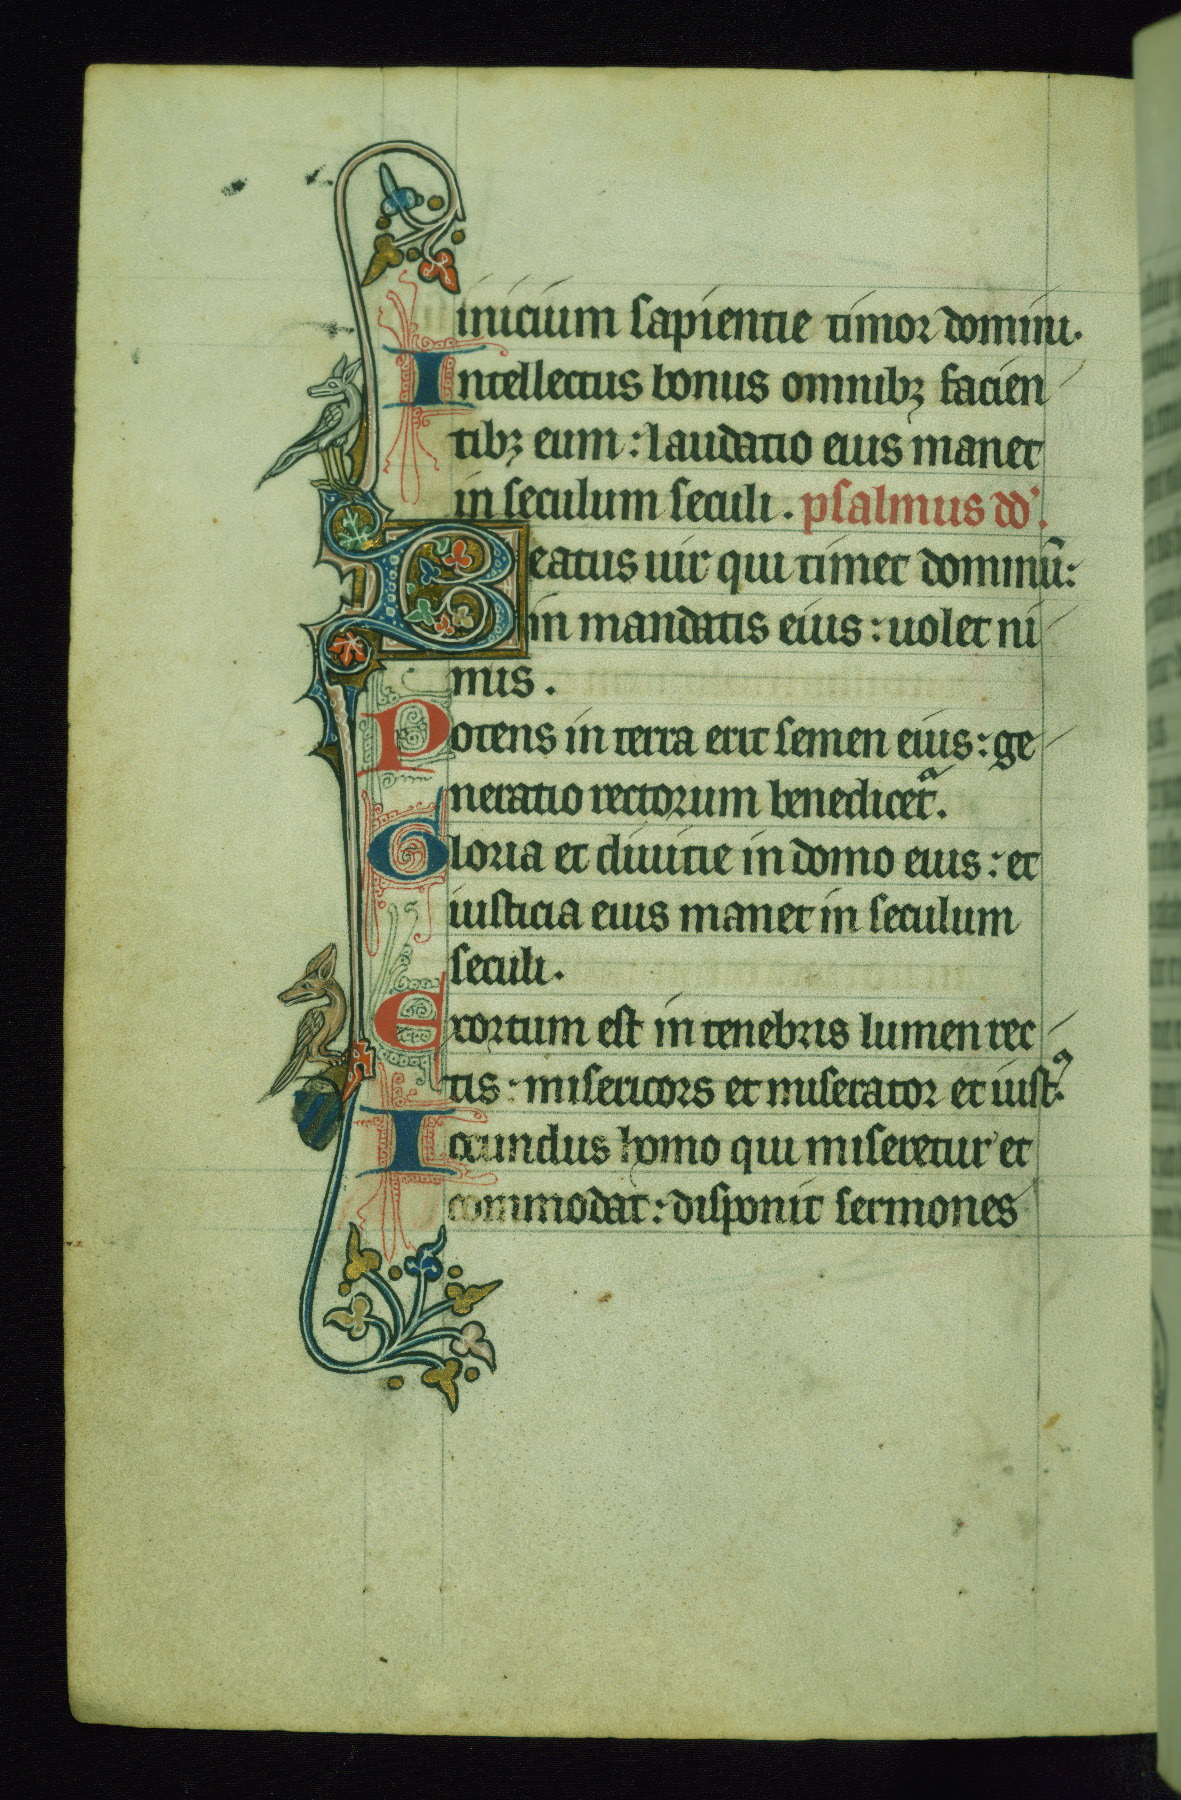 inicium sapientie timor domini.
Intellectus bonus omnibꝫ facien
tibꝫ eum : laudatio eius manet
in seculum seculi . psalmus dd'.
Beatus uir qui timet dominū :
in mandatis eius : uolet ni
mis .
Potens in terra erit semen eius : ge
neratio rectorum benedicetᵃ.
Gloria et diuitie in domo eius : et
iusticia eius manet in seculum
seculi .
Exortum est in tenebris lumen rec
tis : misericors et miserator et iustꝰ.
Iocundus homo qui miseretur et
commodat : disponit sermones